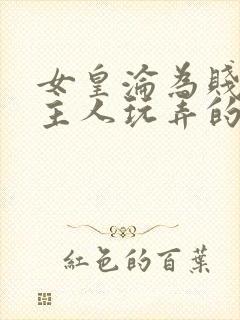 女皇淪為賤
主人玩弄的
紅色的百葉